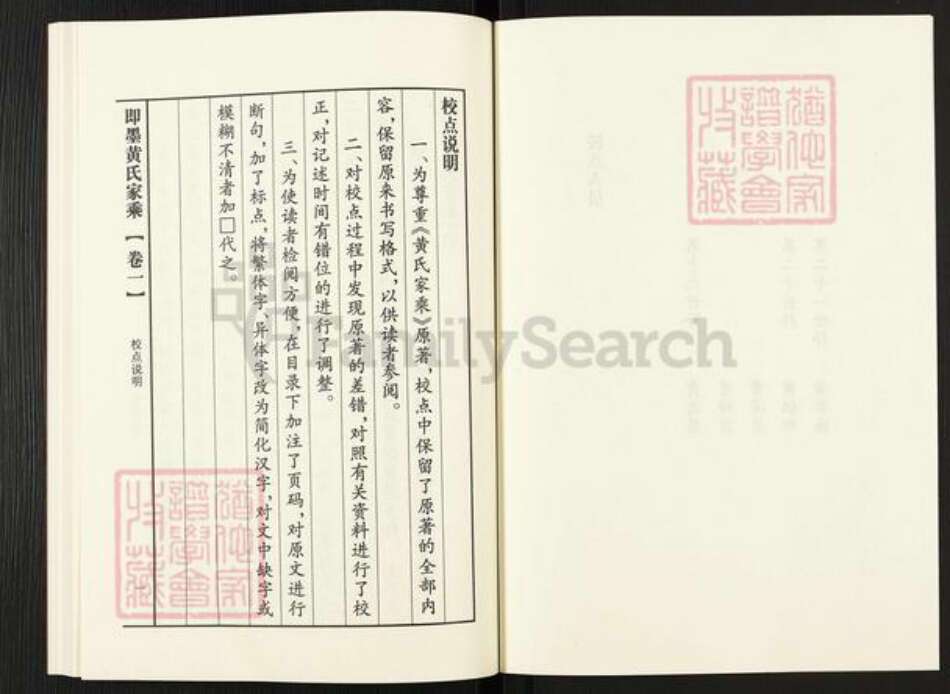 校点说明
一、为尊重《黄氏家乘》原著，校点中保留了原著的全部内
容，保留原来书写格式，以供读者参阅。
二、对校点过程中发现原著的差错，对照有关资料进行了校
正，对记述时间有错位的进行了调整。
三、为使读者检阅方便，在目录下加注了页码，对原文进行
断句，加了标点，将繁体字、异体字改为简化汉字，对文中缺字或
模糊不清者加□代之。
即墨黄氏家乘【卷一】 校点说明
FamilySearch